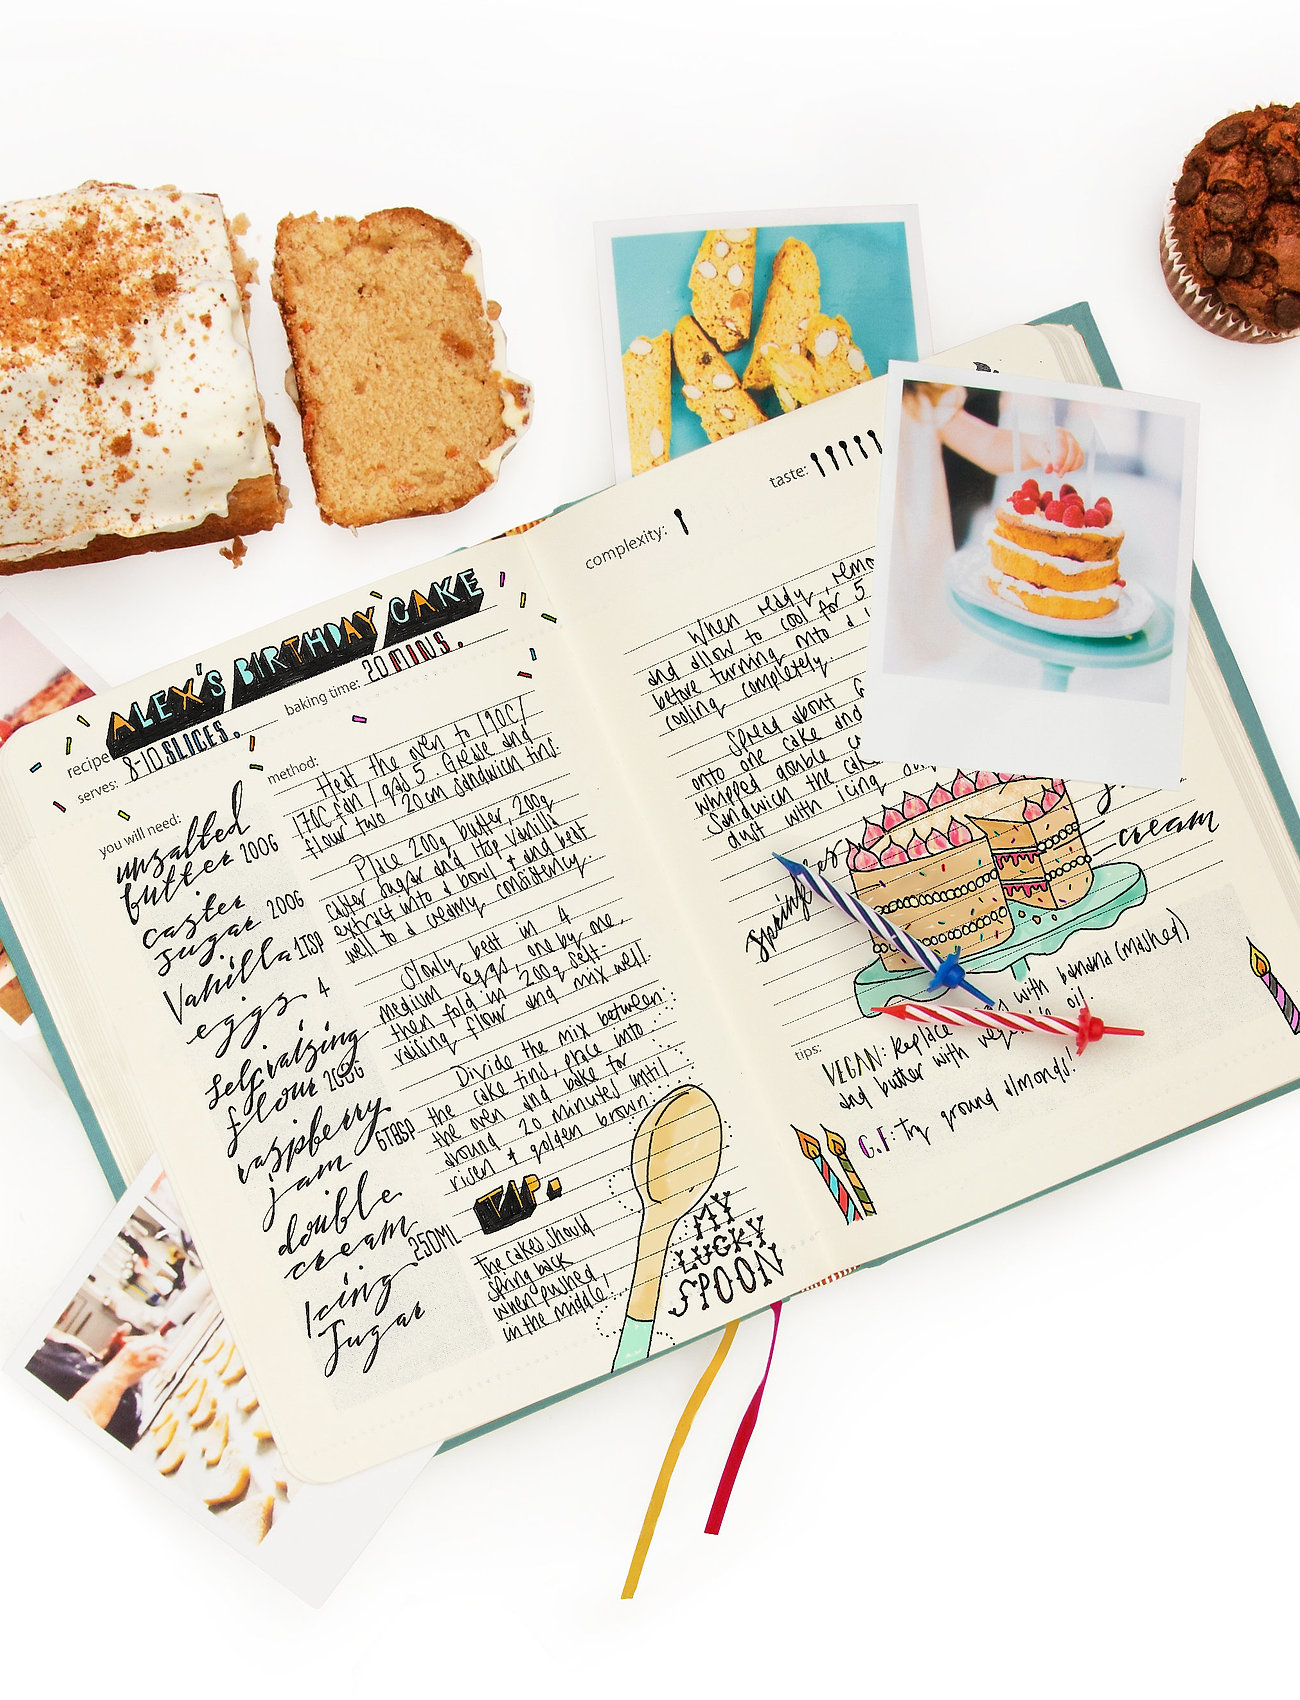 recipe: ALEX'S BIRTHDAY CAKE
serves: 8-10 SLICES.
baking time: 20 MINS.
you will need:
unsalted
butter 200G
caster
sugar 200G
Vanilla 1TSP
eggs 4
self raising
flour 200G
raspberry
jam 6TBSP
double
cream 250ML
Icing
Sugar
method:
Heat the oven to 190C/
170C fan / gas 5. Grease and
flour two 20cm sandwich tins.
Place 200g butter, 200g
caster sugar and 1tsp vanilla
extract into a bowl + and beat
well to a creamy consistency.
Slowly beat in 4
medium eggs, one by one,
then fold in 200g self-
raising flour and mix well.
Divide the mix between
the cake tins, place into
the oven and bake for
around 20 minutes until
risen + golden brown.
TIP:
The cakes should
spring back
when pushed
in the middle!
MY
LUCKY
SPOON
complexity:
taste:
When ready, remo
and allow to cool for 5
before turning onto a
cooling completely.
Spread about
onto one cake and
whipped double
Sandwich the cak
dust with icing
cream
tips:
VEGAN: Replace with banana (mashed)
and butter with oil.
G.F: Try ground almonds!